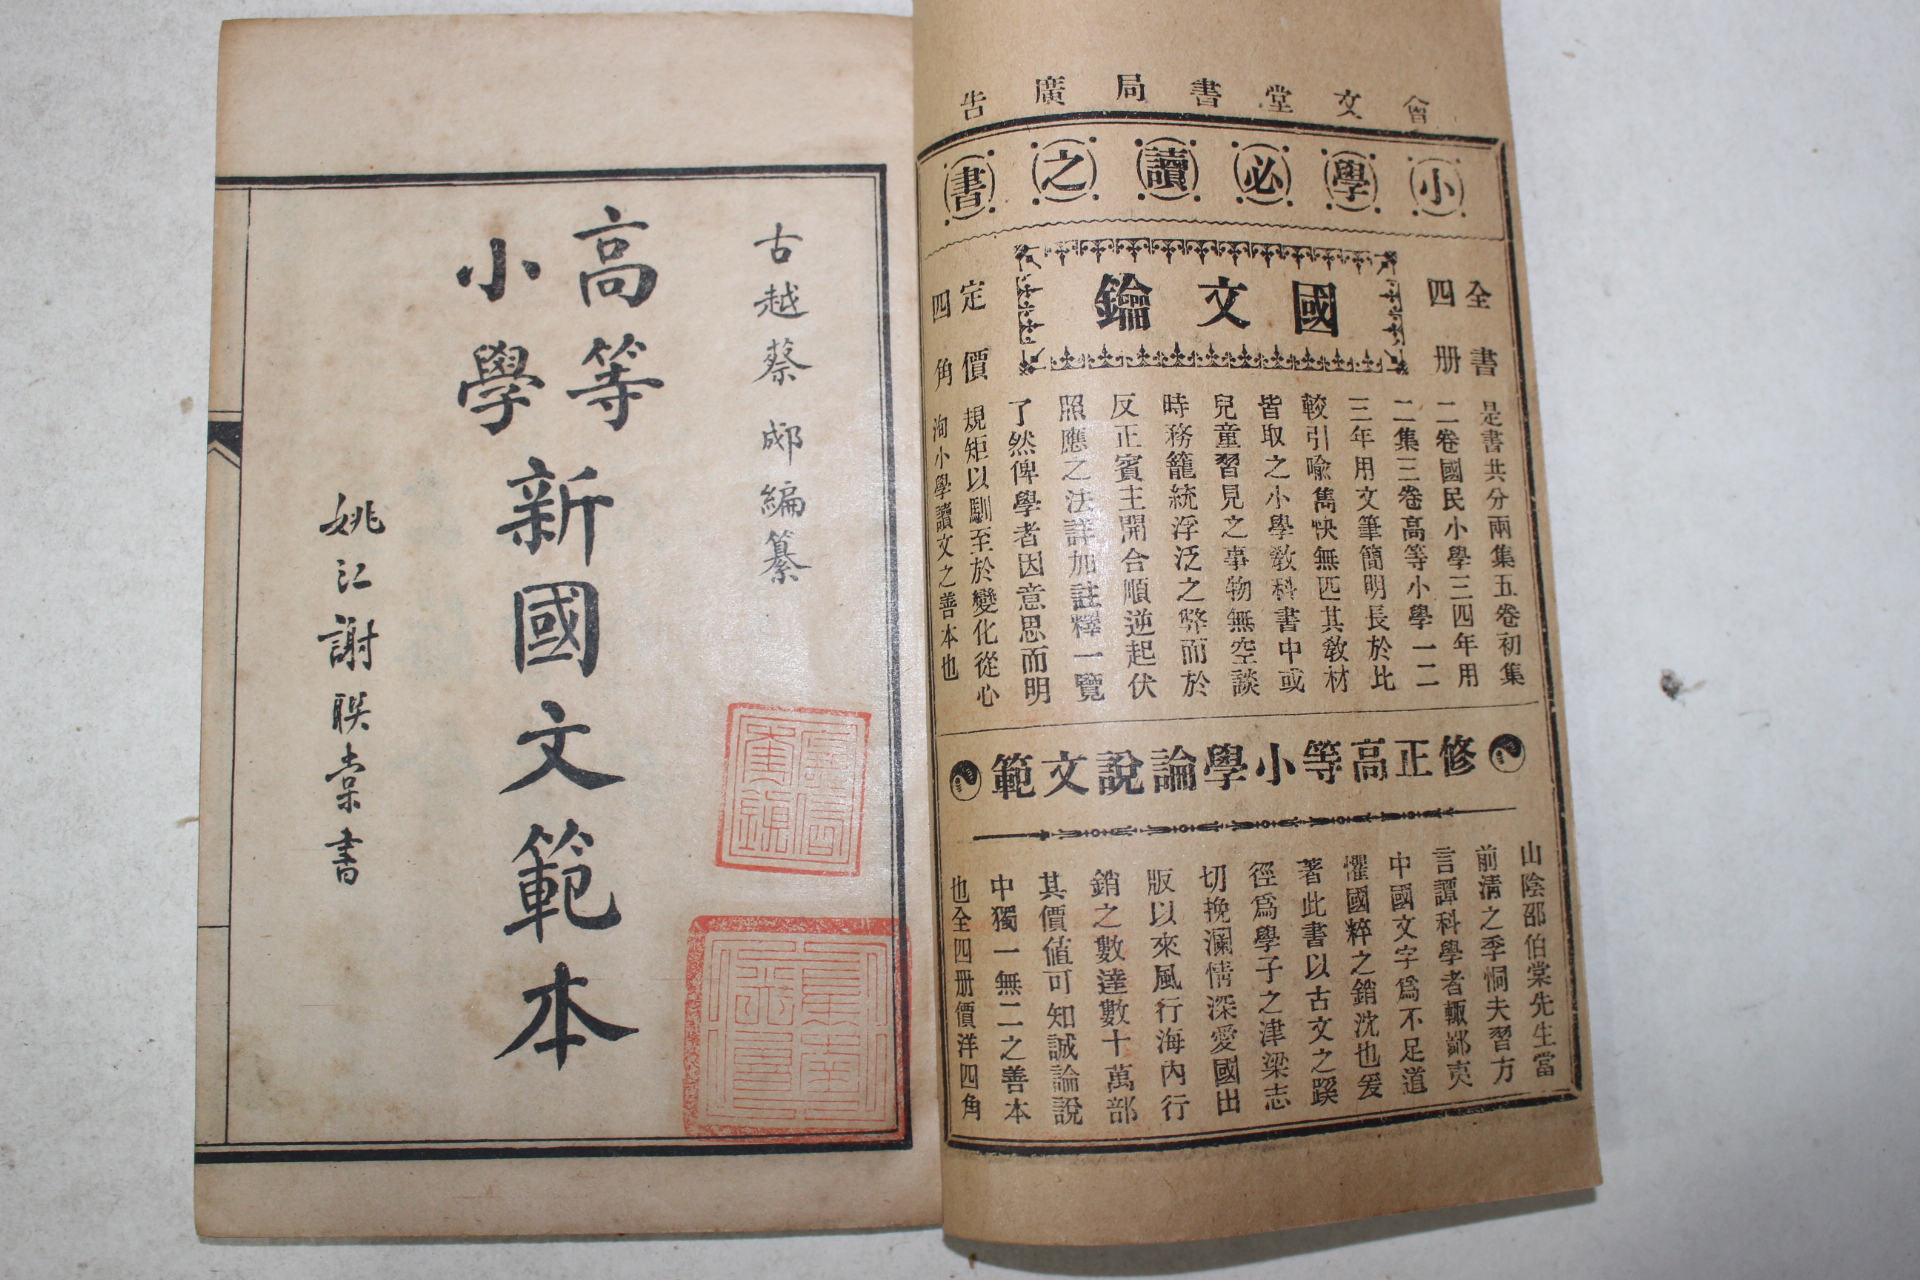 會文堂書局廣告
小學必讀之書
全書四册
國文鑰
定價四角
是書共分兩集五卷初集
二卷國民小學三四年用
二集三卷高等小學一二
三年用文筆簡明長於比
較引喩雋快無匹其教材
皆取之小學教科書中或
兒童習見之事物無空談
時務籠統浮泛之弊而於
反正賓主開合順逆起伏
照應之法詳加註釋一覽
了然俾學者因意思而明
規矩以馴至於變化從心
洵小學讀文之善本也
修正高等小學論說文範
山陰邵伯棠先生當
前清之季恫夫習方
言譚科學者輒鄙夷
中國文字爲不足道
懼國粹之銷沈也爰
著此書以古文之蹊
徑爲學子之津梁志
切挽瀾情深愛國出
版以來風行海內行
銷之數達數十萬部
其價值可知誠論說
中獨一無二之善本
也全四册價洋四角
古越蔡郕編纂
高等
小學
新國文範本
姚江謝联棠書